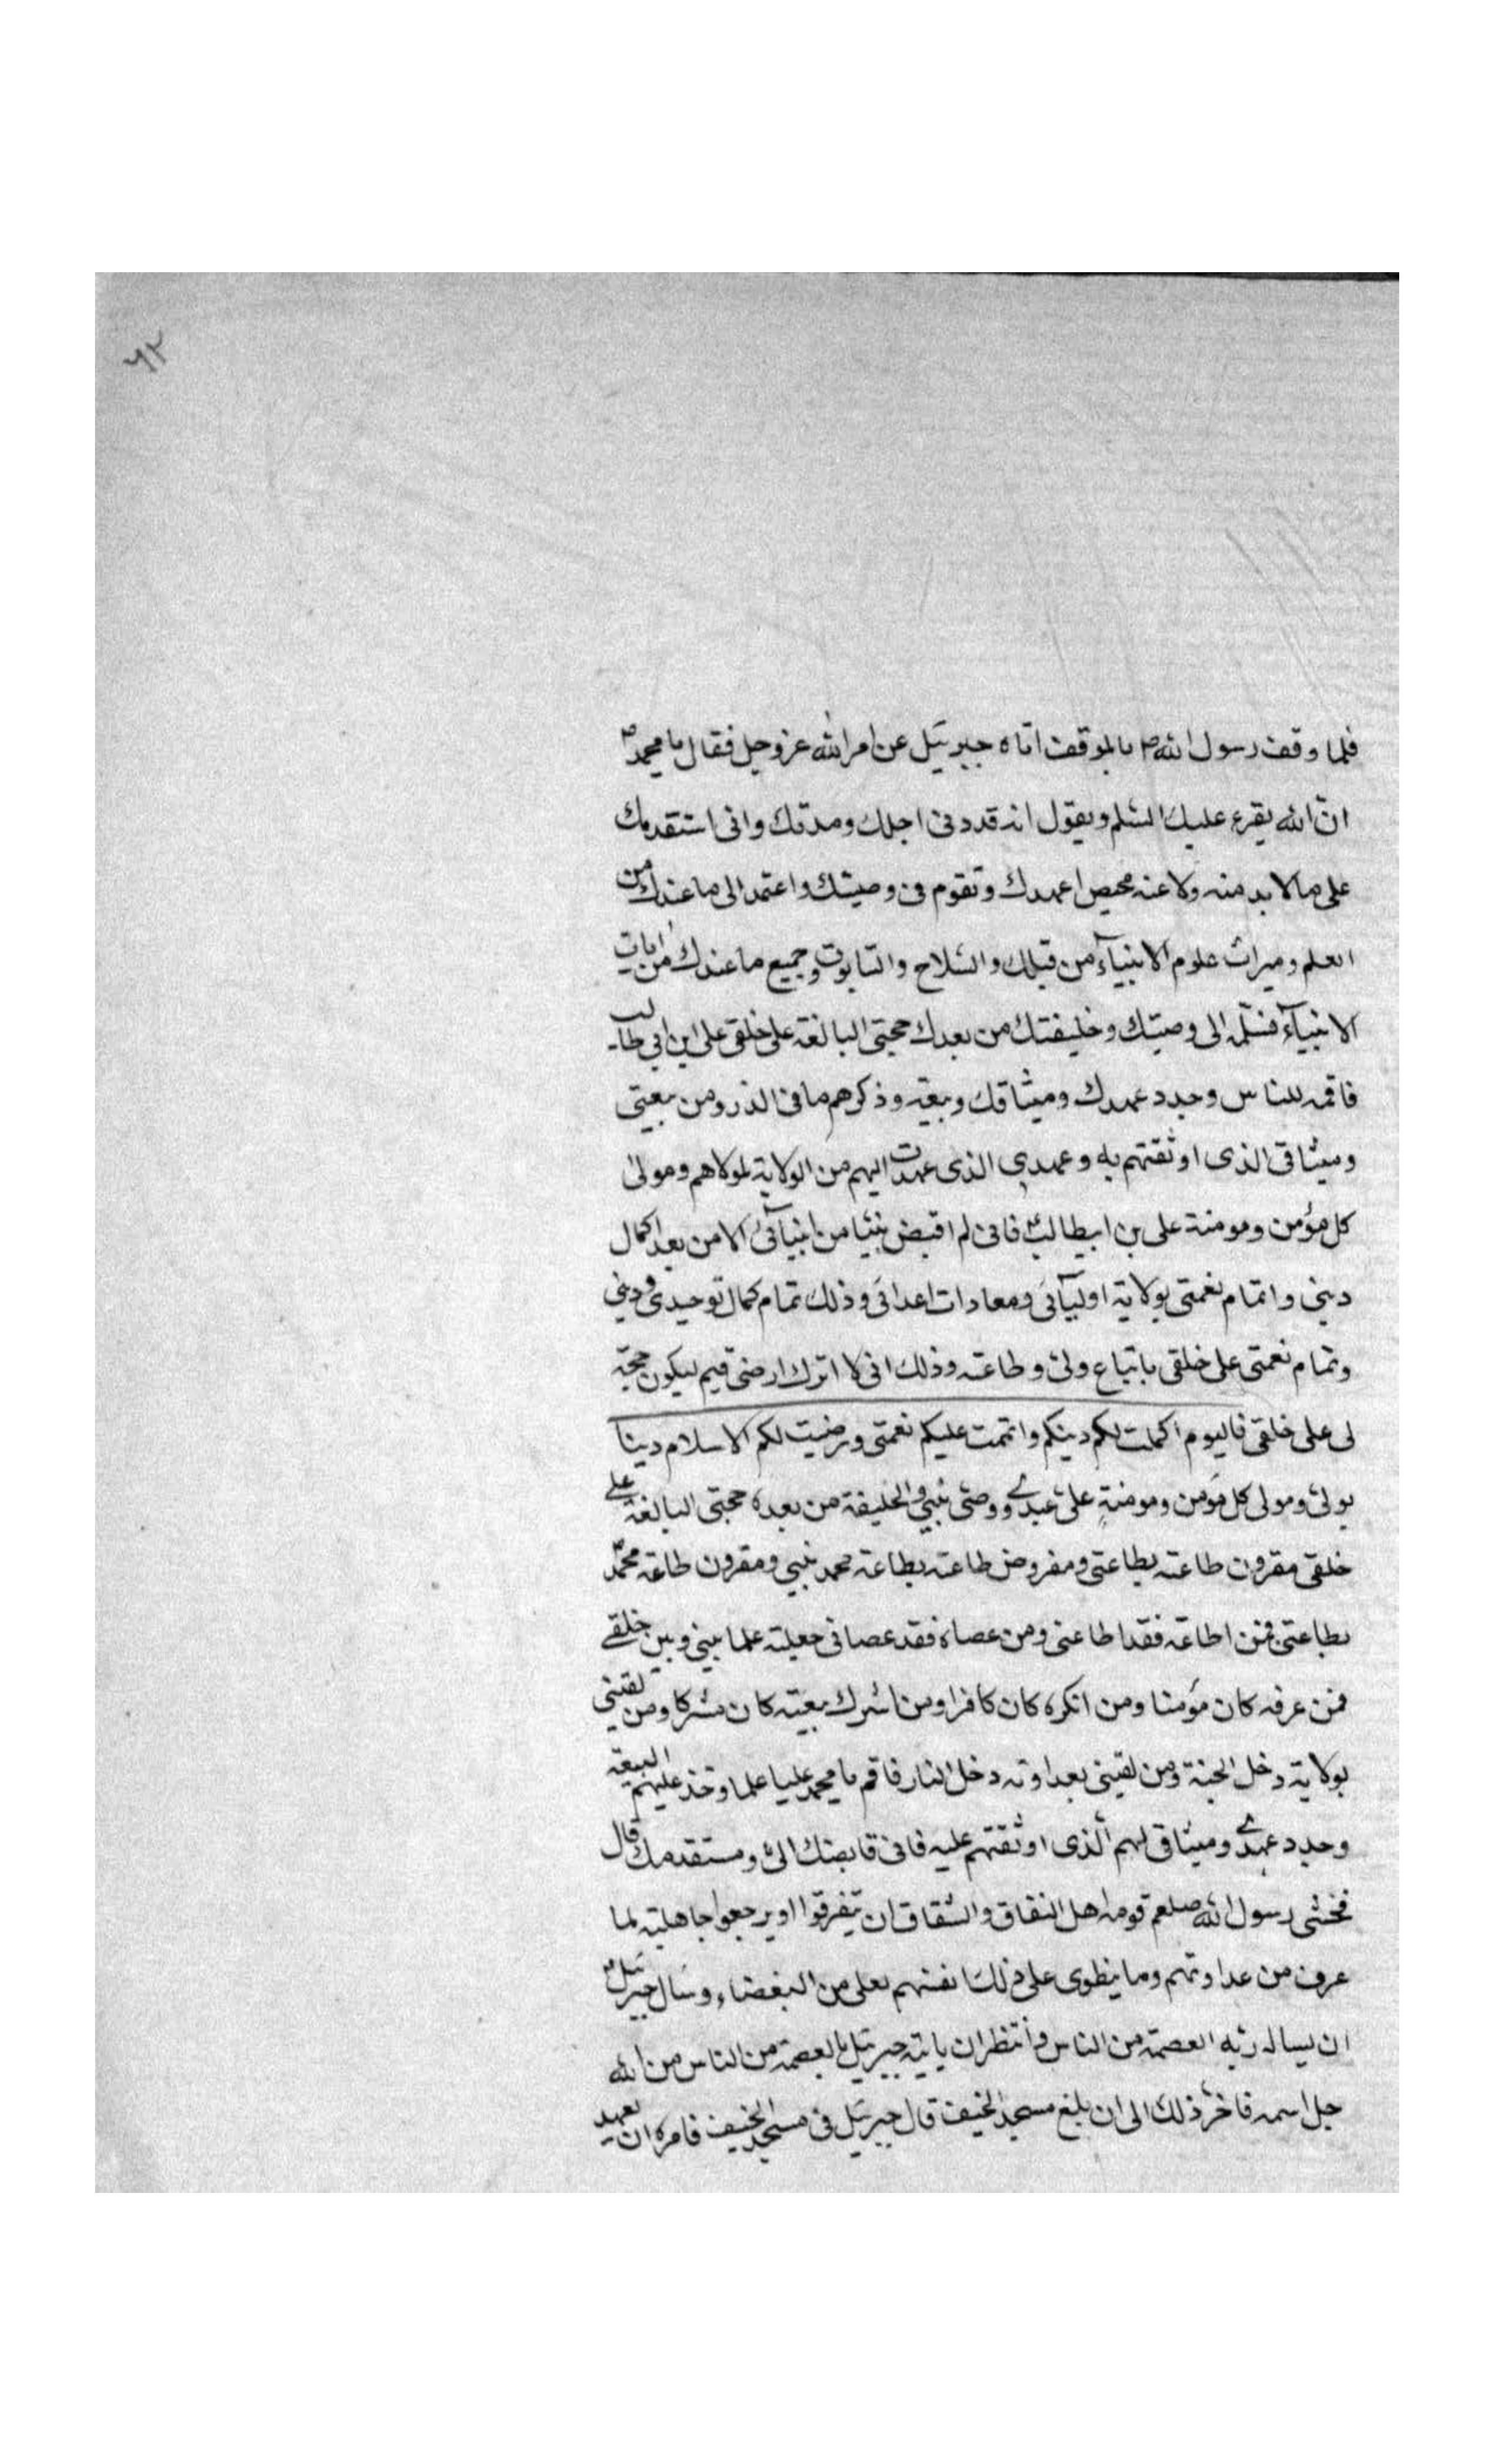 ۶۲
فلما وقف رسول الله ص بالموقف اتاه جبرئيل عن امر الله عز وجل فقال يا محمد ص
ان الله يقرء عليك السلم ويقول انه قد دنى اجلك ومدتك وانى استقدمك
على مالا بد منه ولا عنه محيص اعهد عهدك وتقوم فى وصيتك واعتمد الى ما عندك من
العلم وميراث علوم الانبيآء من قبلك والسّلاح والتابوت وجميع ما عندك من ايات
الانبيآء فسلّمه الى وصيّك وخليفتك من بعدك حجتى البالغة على خلقى على ابن ابى طالب
فاقمه للناس وجدد عهدك وميثاقك وبيعته وذكرهم ما فى الذر ومن بيعتى
وميثاقى الذى اوثقتهم به وعهدى الذى عهدت اليهم من الولاية لمولاهم ومولى
كل مؤمن ومومنة على بن ابيطالب فانى لم اقبض نبيا من انبيآئى الا من بعد اكمال
دينى واتمام نعمتى بولاية اوليآئى ومعادات اعدائى وذلك تمام كمال توحيدى ودينى
وتمام نعمتى على خلقى باتباع وليى وطاعته وذلك انى لا اترك ارضى قيم ليكون حجة
لى على خلقى فاليوم اكملت لكم دينكم واتممت عليكم نعمتى ورضيت لكم الاسلام دينا
بوليى ومولى كل مؤمن ومومنةٍ على عبدى ووصى نبيى والخليفة من بعده حجتى البالغة على
خلقى مقرون طاعته بطاعتى ومفروض طاعته بطاعة محمد نبيى ومقرون طاعة محمّد
بطاعتى فمن اطاعه فقد اطاعنى ومن عصاه فقد عصانى جعلته علما بينى وبين خلقى
فمن عرفه كان مؤمنا ومن انكره كان كافرا ومن اشرك بيعته كان مشركا ومن لقينى
بولايته دخل الجنة ومن لقينى بعداوته دخل النار فاقم يا محمد عليا علما وخذ عليهم البيعة
وجدد عهدى وميثاقى لهم الذى اوثقتهم عليه فانى قابضك الىّ ومستقدمك قال
فخشى رسول الله صلعم قومه اهل النفاق والشقاق ان يتفرقوا او يرجعوا جاهلية لما
عرف من عداوتهم وما ينطوى على ذلك انفسهم لعلى من البغضاء وسال جبرئيل
ان يساله ربه العصمة من الناس وانتظر ان ياتيه جبرئيل بالعصمة من الناس من الله
جل اسمه فاخر ذلك الى ان بلغ مسجد الخيف قال جبرئيل فى مسجد الخيف فامره ان يعهد